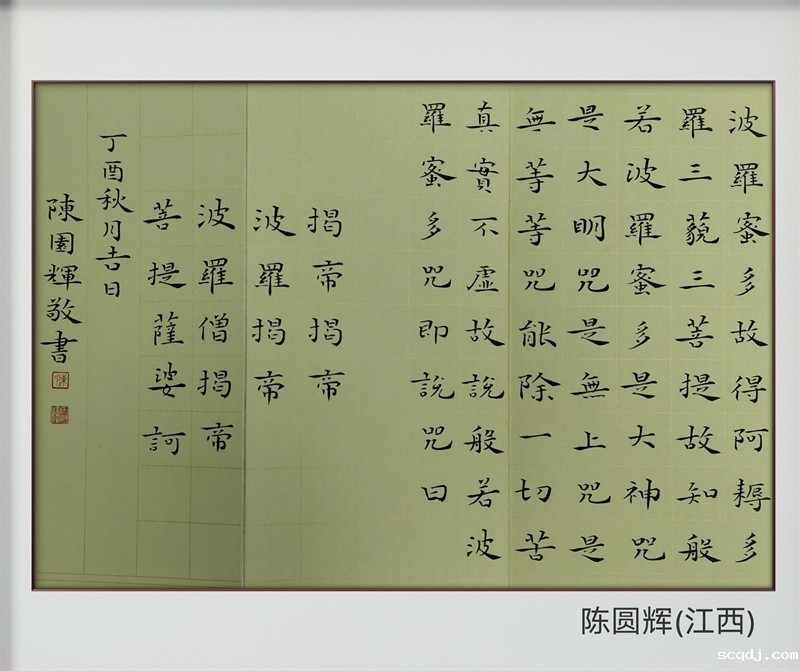 波羅蜜多故得阿耨多
羅三藐三菩提故知般
若波羅蜜多是大神咒
是大明咒是無上咒是
無等等咒能除一切苦
真實不虛故說般若波
羅蜜多咒即說咒曰
揭帝揭帝
波羅揭帝
波羅僧揭帝
菩提薩婆訶
丁酉秋月吉日
陳圓輝敬書
陈圆辉(江西)
scqdj.com